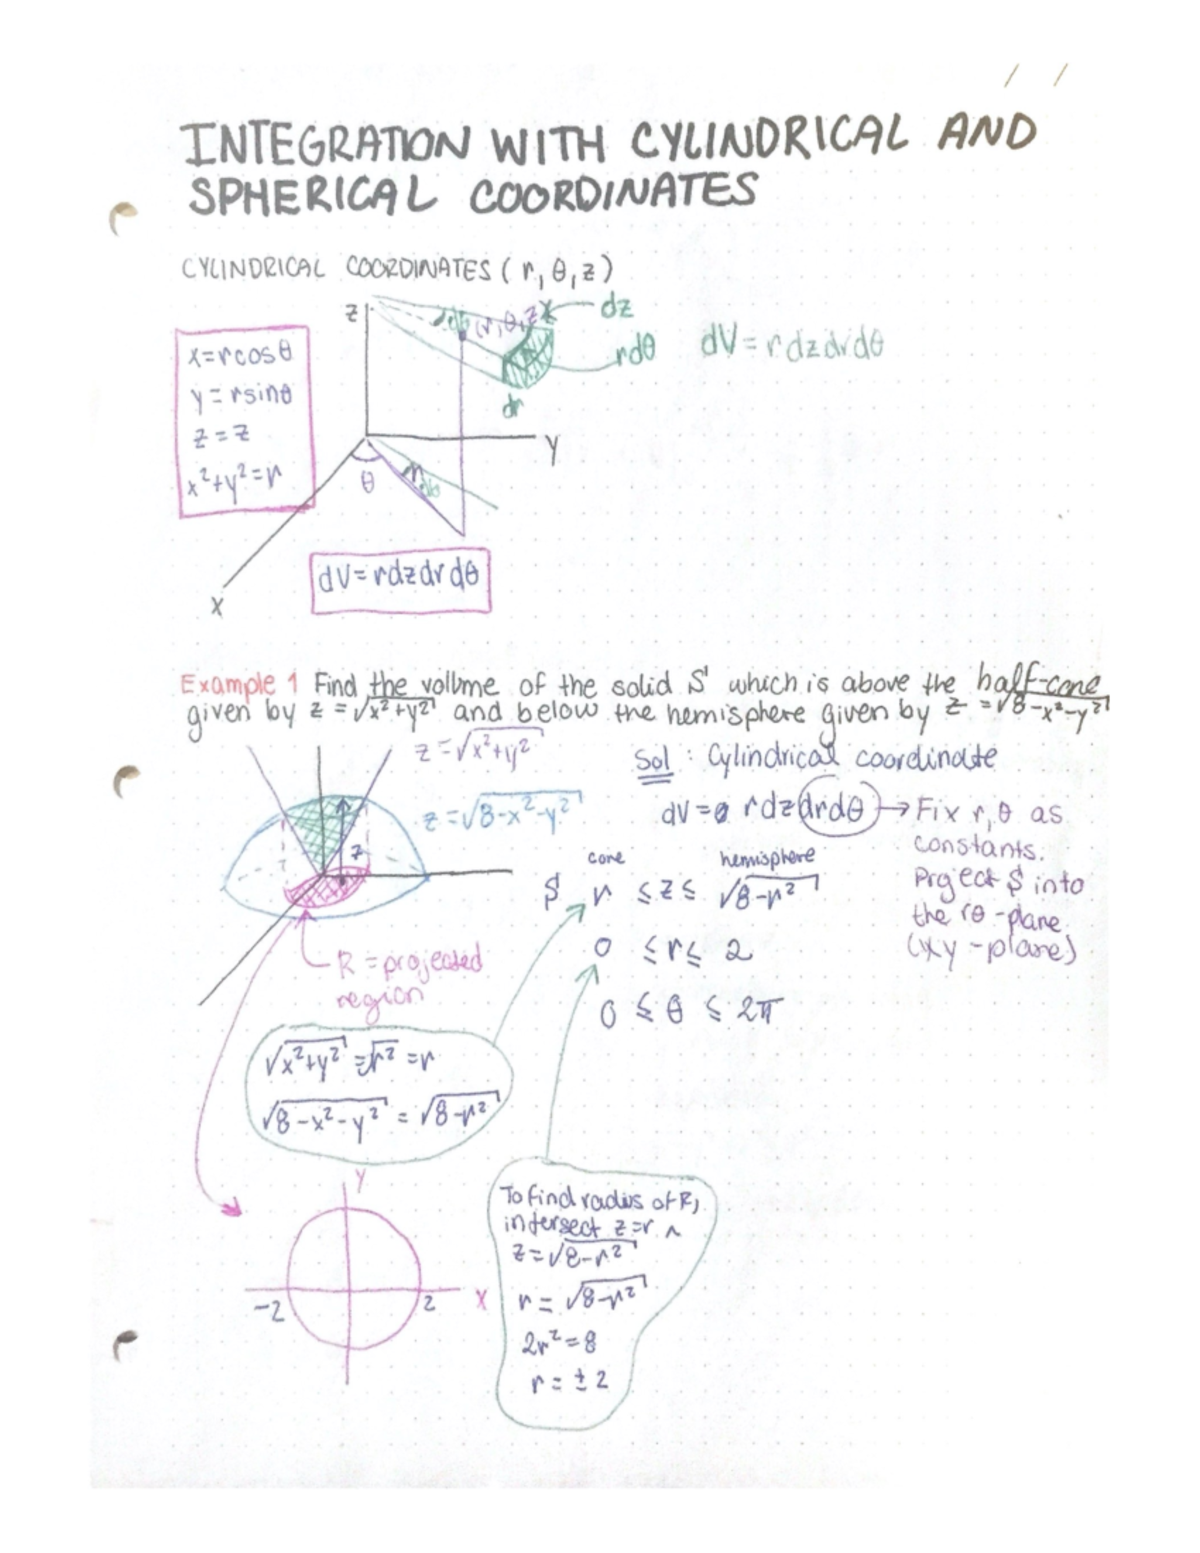 / /
INTEGRATION WITH CYLINDRICAL AND
SPHERICAL COORDINATES
CYLINDRICAL COORDINATES (r, θ, z)
z
(r, θ, z)
dz
rdθ
dr
dV = rdzdrdθ
x=rcosθ
y=rsinθ
z=z
x²+y²=r
y
θ
r
dθ
x
dV=rdzdrdθ
Example 1 Find the volume of the solid S which is above the half-cone
given by z = √x²+y² and below the hemisphere given by z = √8-x²-y²
z=√x²+y²
Sol : Cylindrical coordinate
z=√8-x²-y²
dV= rdzdrdθ → Fix r, θ as
constants.
Project S into
the rθ-plane
(xy-plane)
z
cone hemisphere
S r ≤ z ≤ √8-r²
0 ≤ r ≤ 2
0 ≤ θ ≤ 2π
R = projected
region
√x²+y² = √r² = r
√8-x²-y² = √8-r²
y
-2 2 x
To find radius of R,
intersect z=r n
z=√8-r²
r = √8-r²
2r²=8
r = ±2